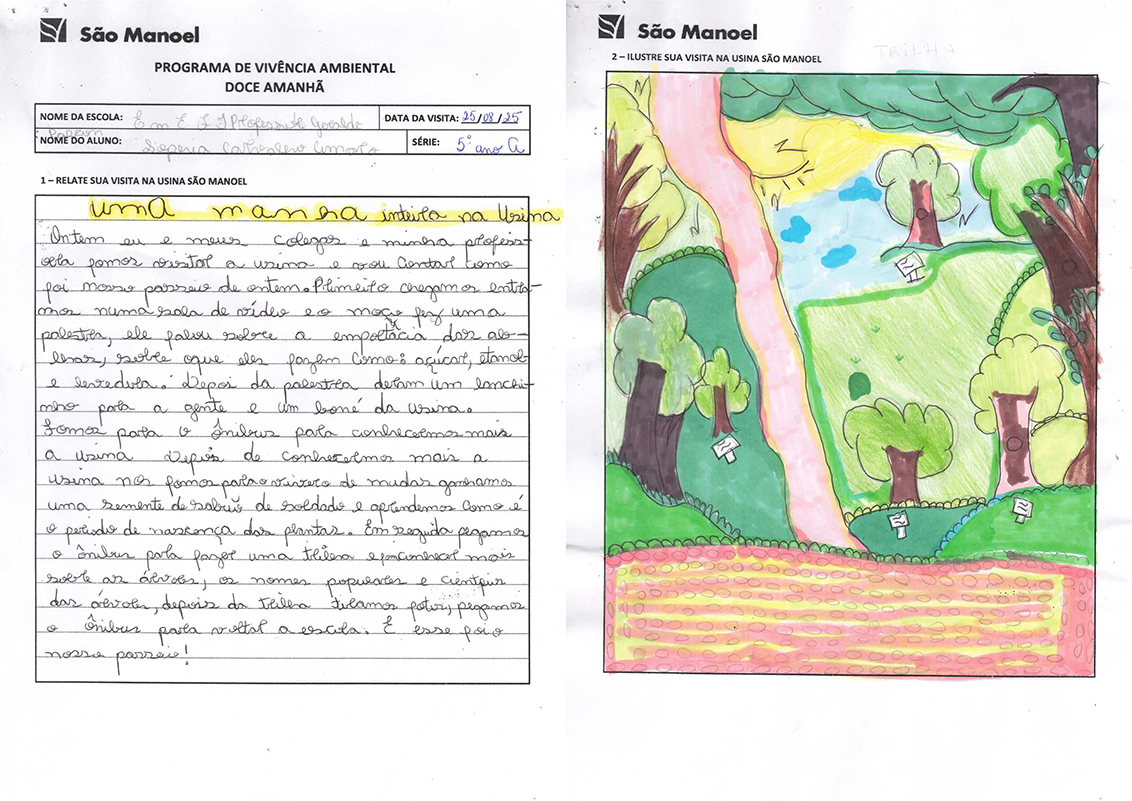 São Manoel
PROGRAMA DE VIVÊNCIA AMBIENTAL
DOCE AMANHÃ
NOME DA ESCOLA: E m E F I Professor Geraldo
DATA DA VISITA: 25/08/25
NOME DO ALUNO:
SÉRIE: 5º ano A
1 – RELATE SUA VISITA NA USINA SÃO MANOEL
uma manha inteira na Usina
Ontem eu e meus colegas e minha profess-
ora fomos visitar a usina e vou contar como
foi nosso passeio de ontem. Primeiro chegamos entra-
mos numa sala de vídeo e o moço fez uma
palestra, ele falou sobre a emportãcia das abe-
lhas, sobre oque eles fazem como: açúcar, etanol
e levedura. Depoi da palestra deram um lanchi-
nho para a gente e um boné da usina.
Fomos para o ônibus para conhecermos mais
a usina Depois de conhecermos mais a
usina nos fomos para o viveiro de mudas ganhamos
uma semente de sabão de soldado e aprendemos como é
o período de nascença das plantas. Em seguida pegamos
o ônibus para fazer uma trilha e conhecer mais
sobre as árvores, os nomes populares e
das árvores, depois da trilha tiramos fotos, pegamos
o ônibus para voltar a escola. E esse foi o
nosso passeio!
São Manoel
TRILHA
2 – ILUSTRE SUA VISITA NA USINA SÃO MANOEL